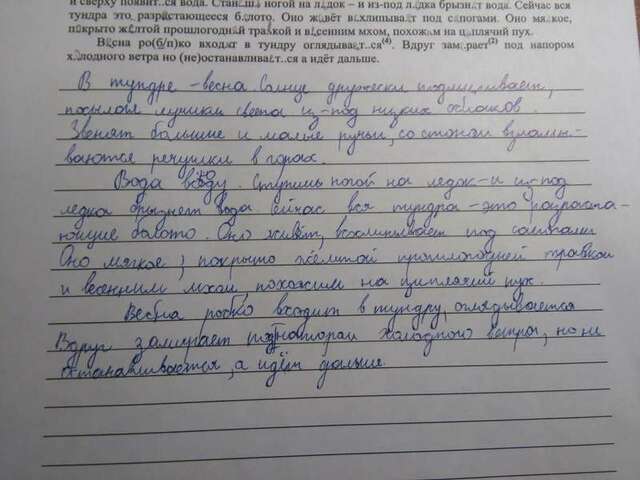 и сверху появит..ся вода. Станешь ногой на лядок – и из-под лядка брызнет вода. Сейчас вся
тундра это разрастающееся болото. Оно живёт всхлипывает под сапогами. Оно мягкое,
покрыто жёлтой прошлогодней травкой и весенним мхом, похожим на цыплячий пух.
Весна ро(б/п)ко входит в тундру оглядывает..ся(4). Вдруг замирает(2) под напором
холодного ветра но (не)останавливает..ся а идёт дальше.
В тундре – весна. Солнце дружески подмигивает,
посылая лучики света из-под низких облаков.
Звенят большие и малые ручьи, со стоном взламы-
ваются речушки в горах.
Вода всюду. Ступишь ногой на ледок – и из-под
ледка брызнет вода. Сейчас вся тундра – это разраста-
ющие болото. Оно живёт, всхлипывает под сапогами
Оно мягкое, покрыто жёлтой прошлогодней травкой
и весенним мхом похожим на цыплячий пух.
Весна робко входит в тундру, оглядывается
Вдруг замирает под напорам холодного ветра, но не
останавливается, а идёт дальше.